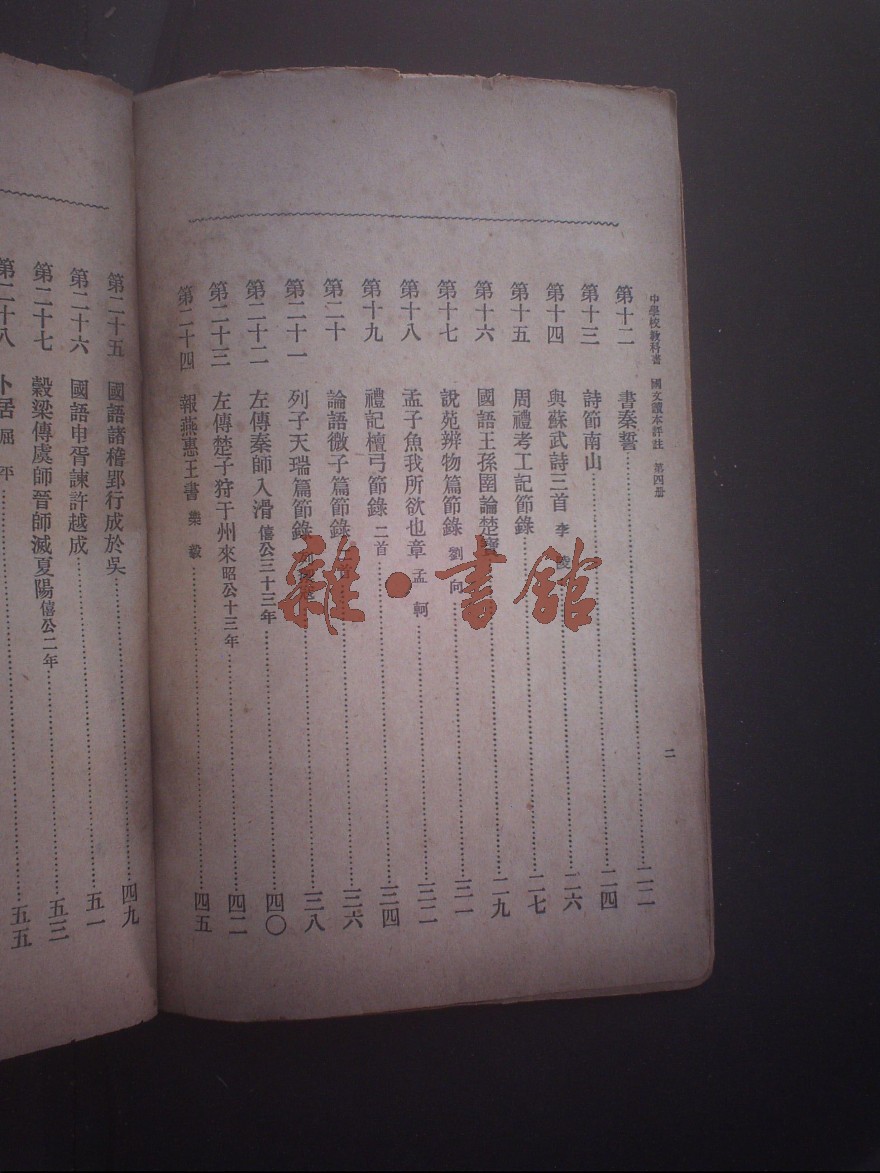 中學校教科書 國文讀本評註 第四册
二
第十二 書秦誓 二二
第十三 詩節南山 二四
第十四 與蘇武詩三首 李陵 二六
第十五 周禮考工記節錄 二七
第十六 國語王孫圉論楚寶 二九
第十七 說苑辨物篇節錄 劉向 三一
第十八 孟子魚我所欲也章 孟軻 三二
第十九 禮記檀弓節錄 二首 三四
第二十 論語微子篇節錄 三六
第二十一 列子天瑞篇節錄 三八
第二十二 左傳秦師入滑 僖公三十三年 四〇
第二十三 左傳楚子狩于州來 昭公十三年 四二
第二十四 報燕惠王書 樂毅 四五
第二十五 國語諸稽郢行成於吳 四九
第二十六 國語申胥諫許越成 五一
第二十七 穀梁傳虞師晉師滅夏陽 僖公二年 五三
第二十八 卜居 屈平 五五
雜·書館